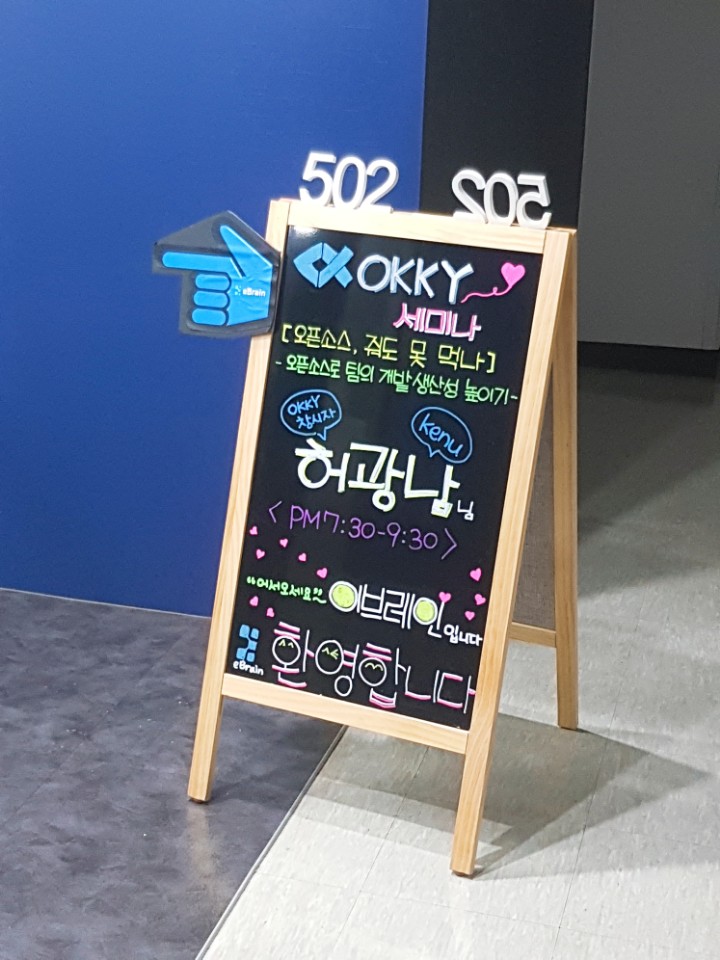 502
502
eBrain
OKKY
세미나
[오픈소스, 줘도 못 먹나]
- 오픈소스로 팀의 개발생산성 높이기-
OKKY
창시자
kenu
허광남님
< PM 7:30-9:30 >
"어서오세요"
이브레인입니다
eBrain
환영합니다